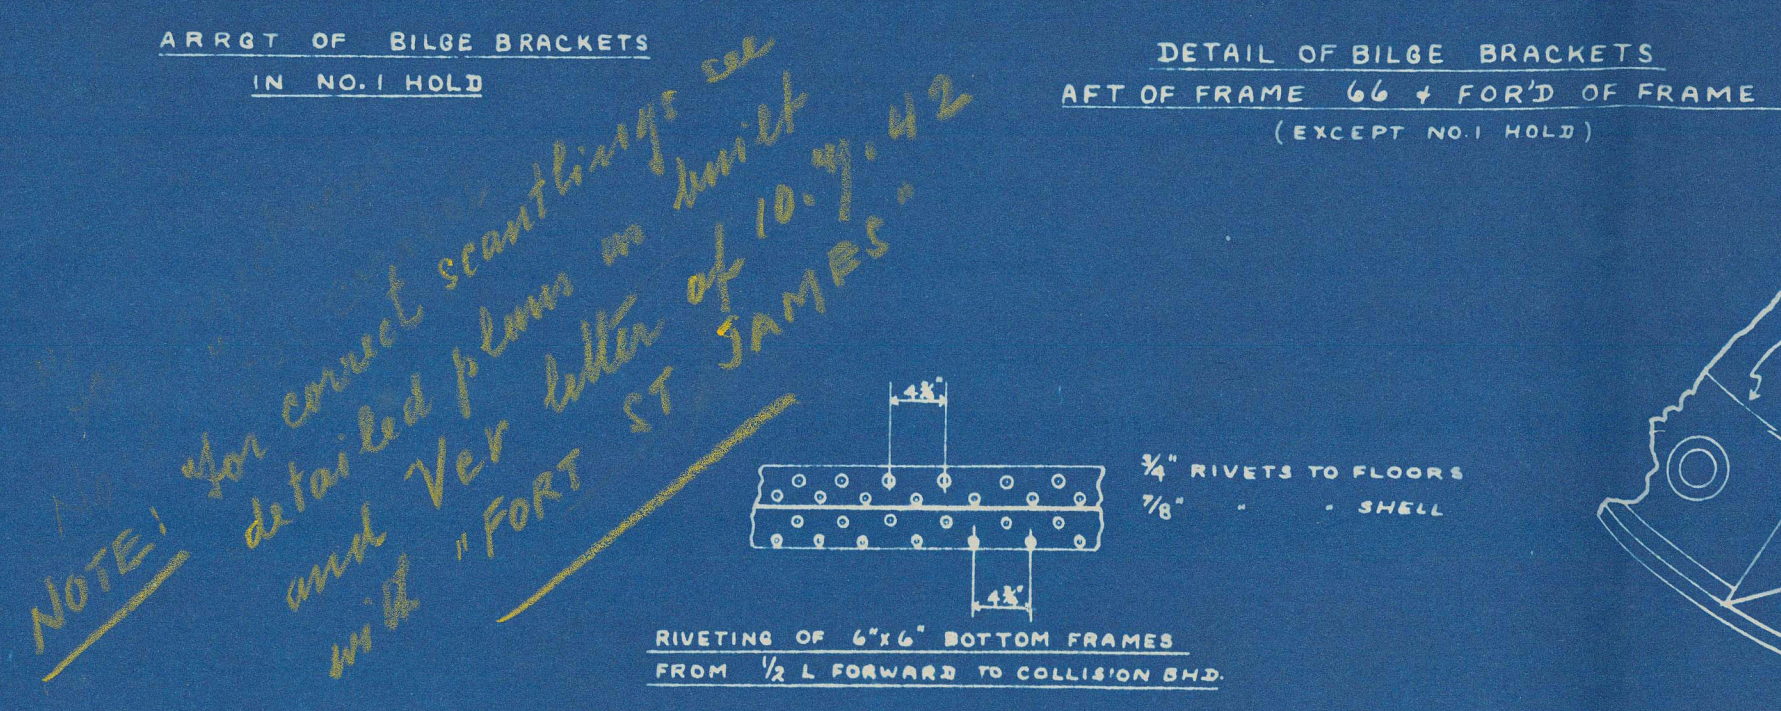 ARRGT OF BILGE BRACKETS
IN NO. 1 HOLD
DETAIL OF BILGE BRACKETS
AFT OF FRAME 66 & FOR'D OF FRAME
(EXCEPT NO. 1 HOLD)
NOTE! For correct scantlings see
detailed plans as built
and Ver letter of 10.7.42
with "FORT ST JAMES"
¾" RIVETS TO FLOORS
⅞" " " SHELL
RIVETING OF 6"X6" BOTTOM FRAMES
FROM ½ L FORWARD TO COLLISION BHD.